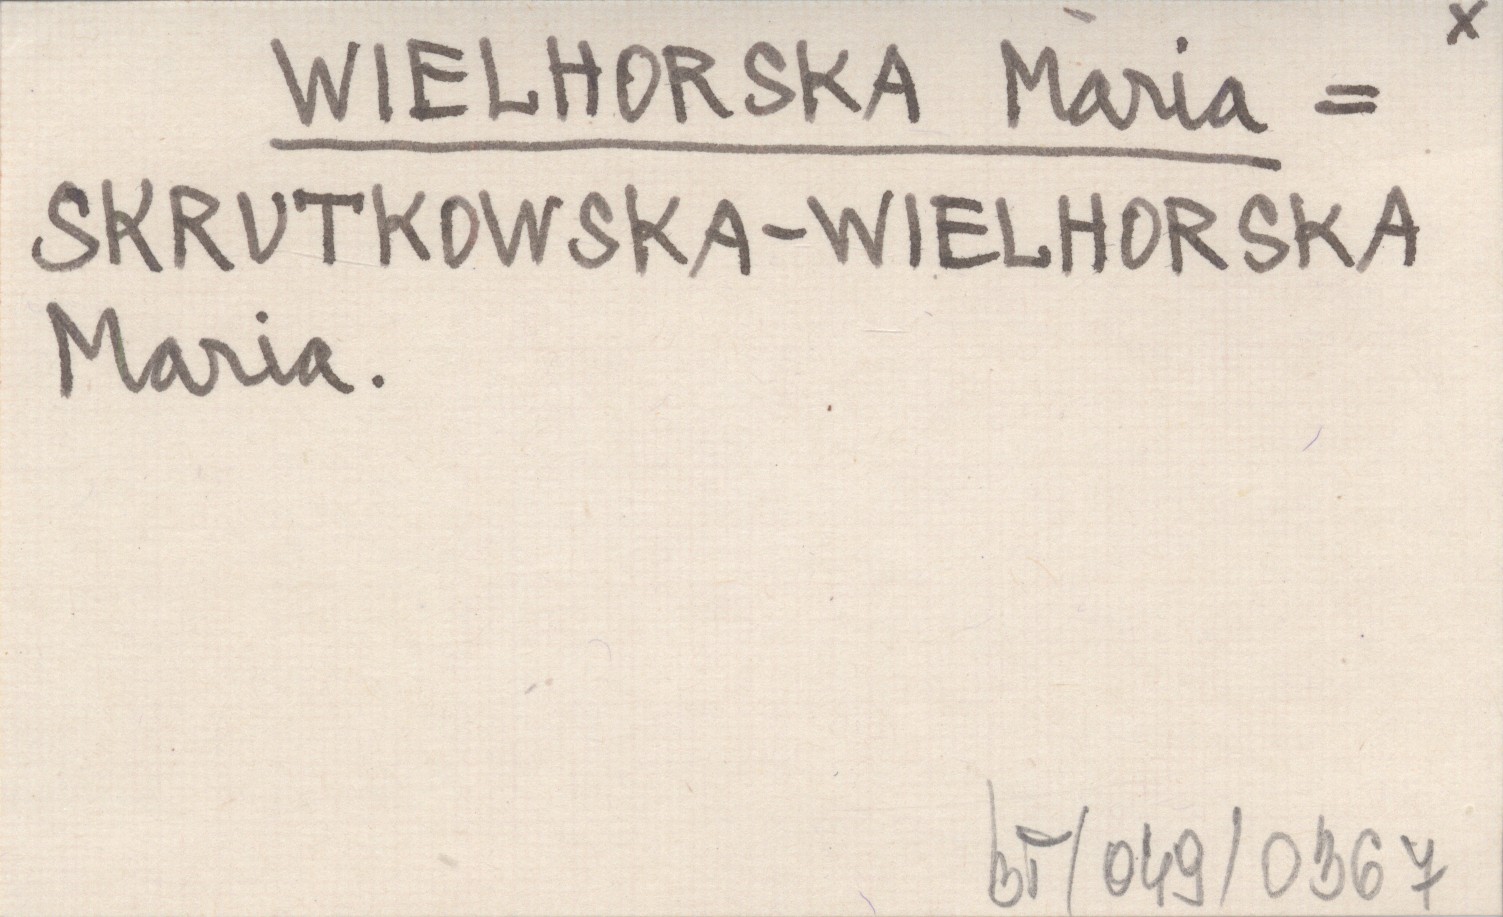 x
WIELHORSKA Maria =
SKRUTKOWSKA-WIELHORSKA
Maria.
/049/0367